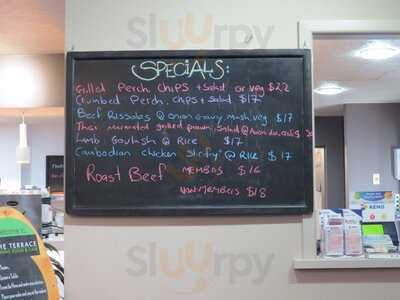 SPECIALS:
Grilled Perch, Chips + Salad or veg $22
Crumbed Perch, Chips + Salad $17
Beef Rissoles @ onion gravy, mash, veg $17
Thai marinated grilled prawn, Salad @
Lamb Goulash @ Rice $17
Cambodian Chicken Stirfry @ RICE $17
Roast Beef MEMBERS $16
NON-MEMBERS $18
THE TERRACE
KENO
Sluurpy
Sluurpy